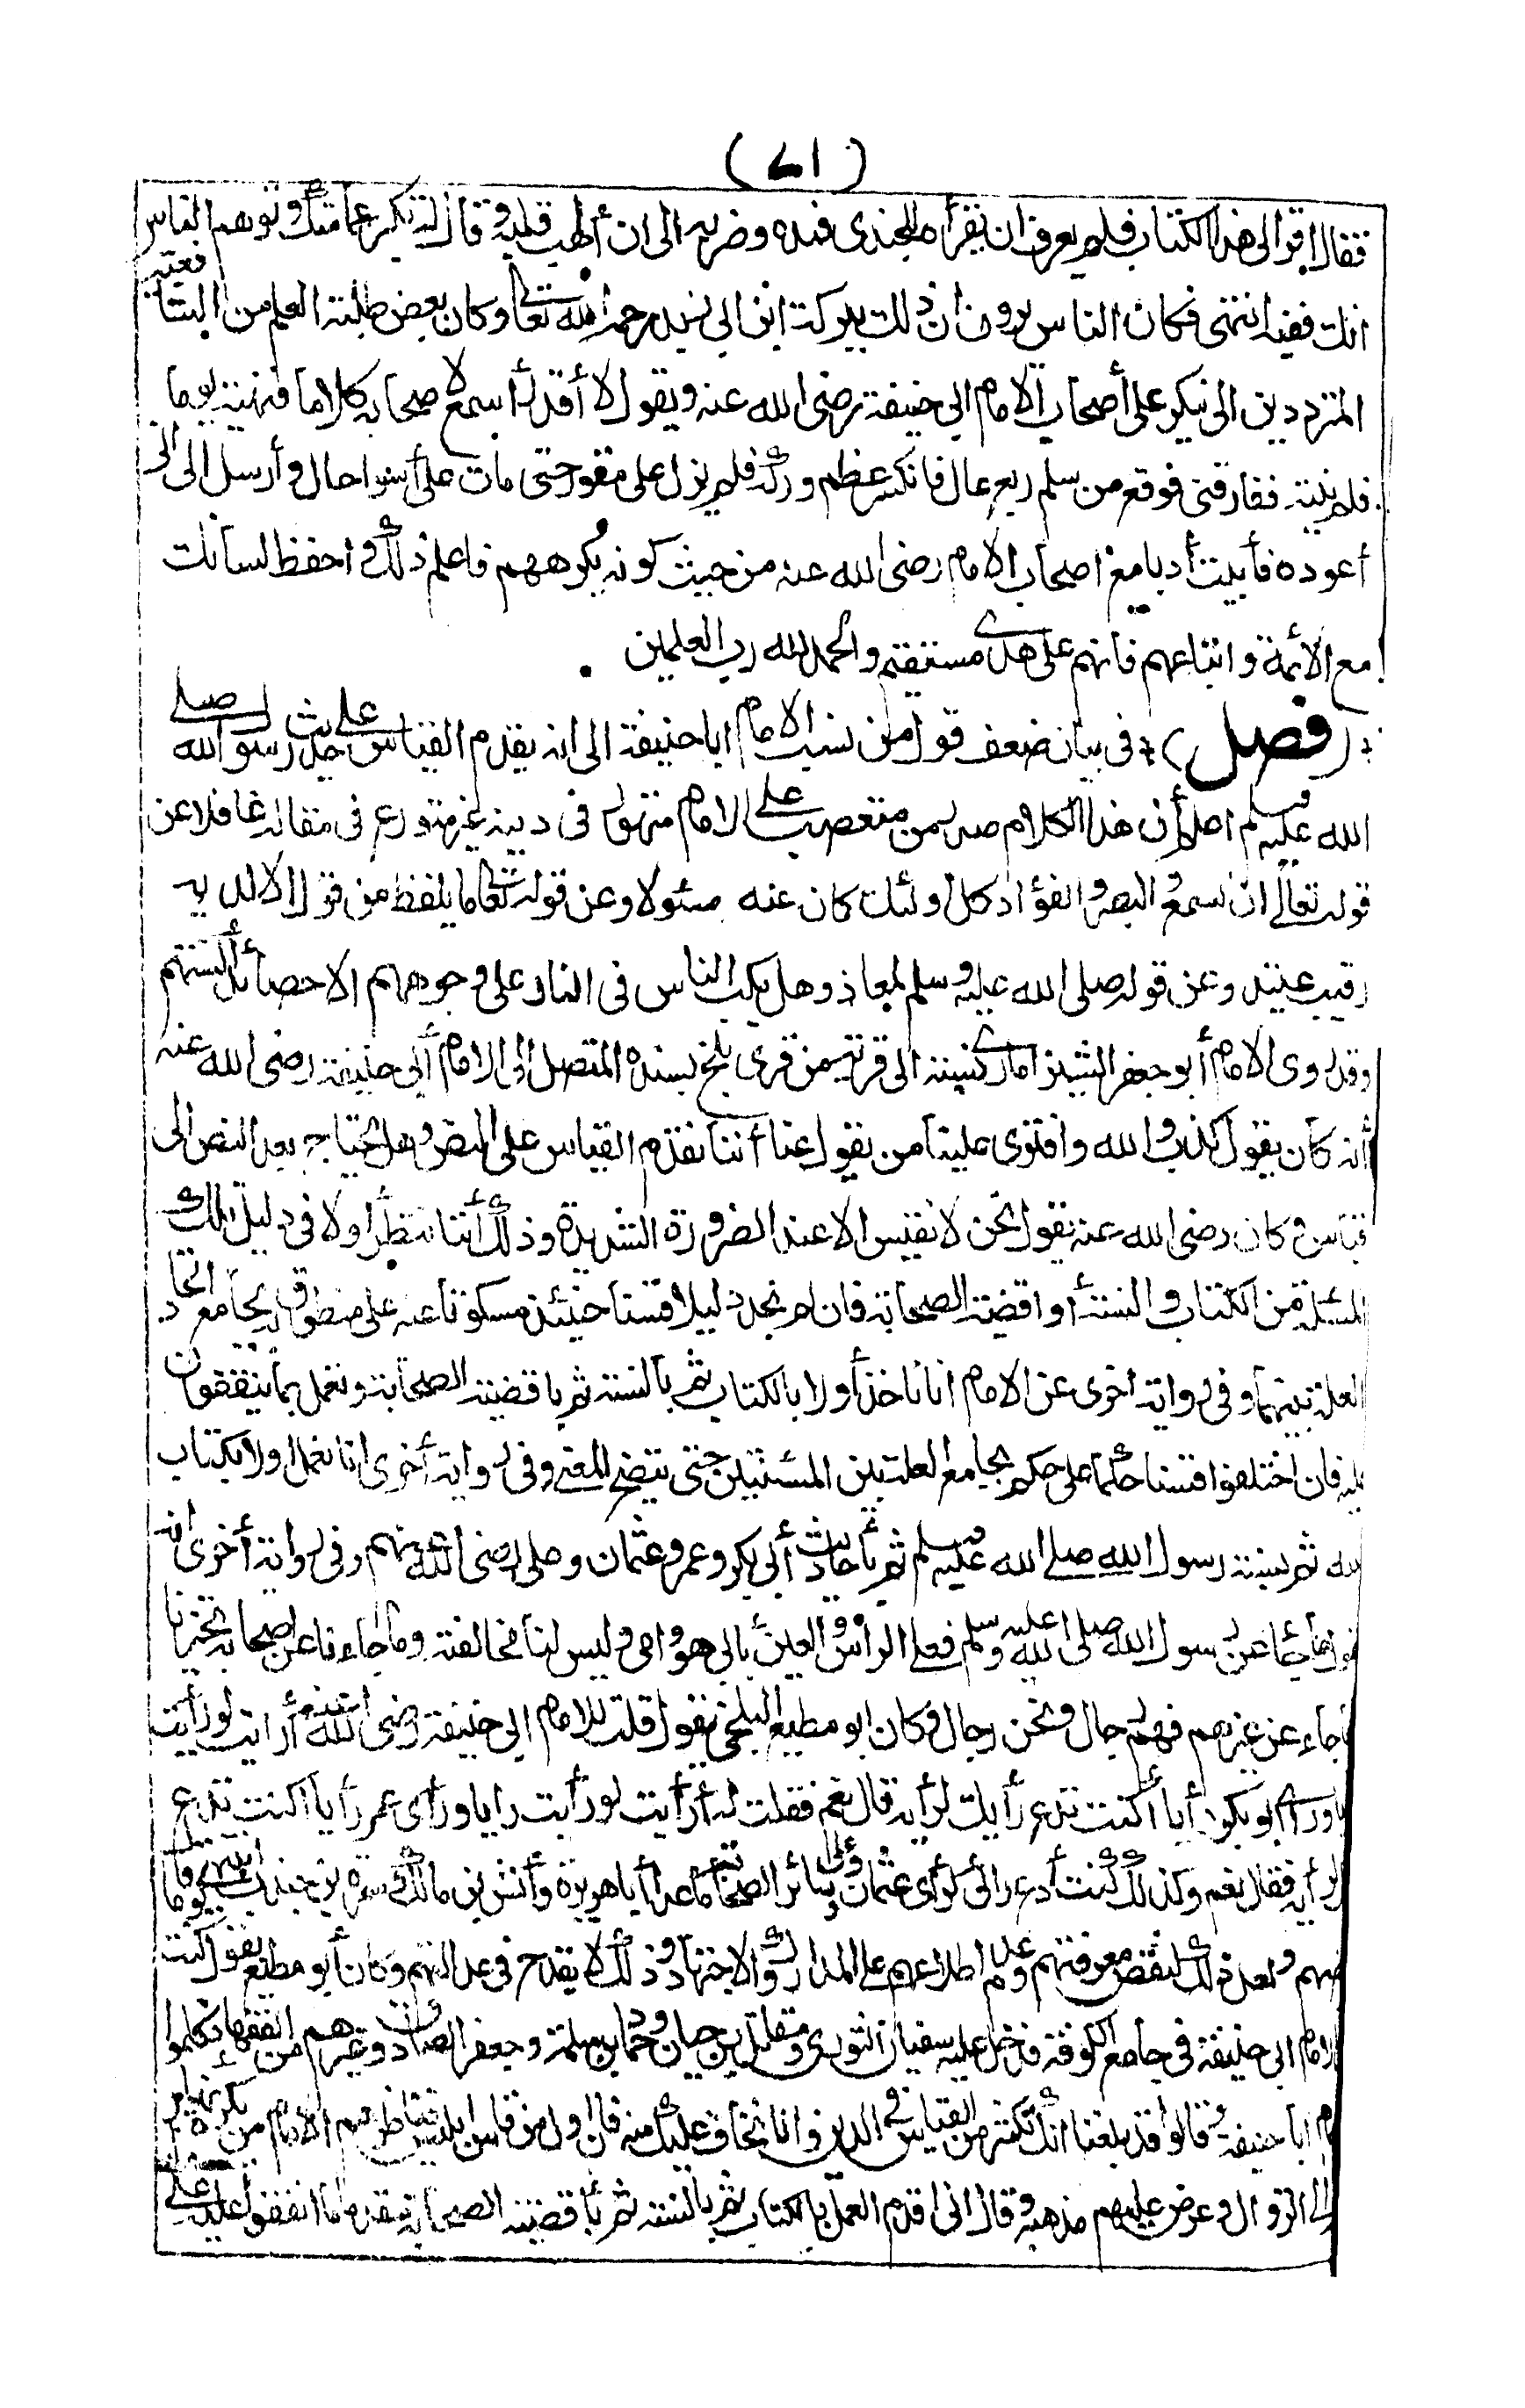 (٧١)
فقال اقرا لى هذا الكتاب فلم يعرف ان يقرأه للجندى فمده وضربه الى ان ألهب قلبه وقال له تكبر عمامتك وتوهم الناس
انك فقيه انتهى فكان الناس يرون ان ذلك ببركة ابن ابى زيد رحمه الله تعالى وكان بعض طلبة العلم من الشافعية
المترددين الى ينكر على أصحاب الامام ابى حنيفة رضى الله عنه ويقول لا أقدر أسمع لاصحابه كلاما فنهيته يوما
فلم ينته ففارقنى فوقع من سلم ربع عال فانكسر عظم وركه فلم يزل على مقعره حتى مات على أسوا حال وأرسل الى انى
أعوده فأبيت أدبا مع اصحاب الامام رضى الله عنه من حيث كونه يكرههم فاعلم ذلك واحفظ لسانك
مع الائمة واتباعهم فانهم على هدى مستقيم والحمد لله رب العلمين
(فصل) فى بيان ضعف قول من نسب الامام ابا حنيفة الى انه يقدم القياس على حديث رسول الله صلى
الله عليه وسلم اعلم أن هذا الكلام صدر من متعصب على الامام متهور فى دينه غير متورع فى مقاله غافلا عن
قوله تعالى ان السمع والبصر والفؤاد كل اولئك كان عنه مسئولا وعن قوله تعالى ما يلفظ من قول الا لديه
رقيب عتيد وعن قوله صلى الله عليه وسلم لمعاذ وهل يكب الناس فى النار على وجوههم الا حصائد ألسنتهم
وقد روى الامام أبو جعفر الشيزامارى نسبة الى قرية من قرى بلخ بسنده المتصل الى الامام أبى حنيفة رضى الله عنه
أنه كان يقول كذب والله وافترى علينا من يقول عنا أننا نقدم القياس على النص وهل يحتاج بعد النص الى
قياس وكان رضى الله عنه يقول نحن لا نقيس الا عند الضرورة الشديدة وذلك أننا ننظر أولا فى دليل تلك
المسئلة من الكتاب والسنة أو اقضية الصحابة فان لم نجد دليلا قسنا حينئذ مسكوتا عنه على منطوق به بجامع اتحاد
العلة بينهما وفى رواية اخرى عن الامام انا ناخذ أولا بالكتاب ثم بالسنة ثم باقضية الصحابة ونعمل بما يتفقون
عليه فان اختلفوا قسنا حكما على حكم بجامع العلة بين المسئلتين حتى يتضح المعنى وفى رواية أخرى انا نعمل اولا بكتاب
الله ثم بسنة رسول الله صلى الله عليه وسلم ثم بأحاديث أبى بكر وعمر وعثمان وعلى رضى الله عنهم وفى رواية أخرى انه
يقول ما جاء عن رسول الله صلى الله عليه وسلم فعلى الرأس والعين بابى هو وامى وليس لنا مخالفته وما جاءنا عن اصحابه تخيرنا
وما جاء عن غيرهم فهم رجال ونحن رجال وكان ابو مطيع البلخى يقول قلت للامام ابى حنيفة رضى الله عنه أرايت لو رأيت
رأيا ورأى ابو بكر رأيا أكنت تدع رأيك لرأيه قال نعم فقلت له أرأيت لو رأيت رايا ورأى عمر رأيا اكنت تدع
رأيك لرأيه فقال نعم وكذلك كنت أدع رأئى لرأى عثمان وعلى وسائر الصحابة ما عدا أبا هريرة وأنس بن مالك وسمرة بن جندب انتهى
بعضهم ولعل ذلك لنقص معرفتهم وعدم اطلاعهم على مدارك الاجتهاد وذلك لا يقدح فى عدالتهم وكان أبو مطيع يقول كنت يوما
عند الامام ابى حنيفة فى جامع الكوفة فدخل عليه سفيان الثورى ومقاتل بن حيان وحماد بن سلمة وجعفر الصادق وغيرهم من الفقهاء فكلموا
الامام ابا حنيفة وقالوا قد بلغنا انك تكثر من القياس فى الدين وانا نخاف عليك منه فان اول من قاس ابليس فناظرهم الامام من بكرة نهار
الى الزوال وعرض عليهم مذهبه وقال انى اقدم العمل بالكتاب ثم بالسنة ثم باقضية الصحابة مقدما ما اتفقوا عليه على